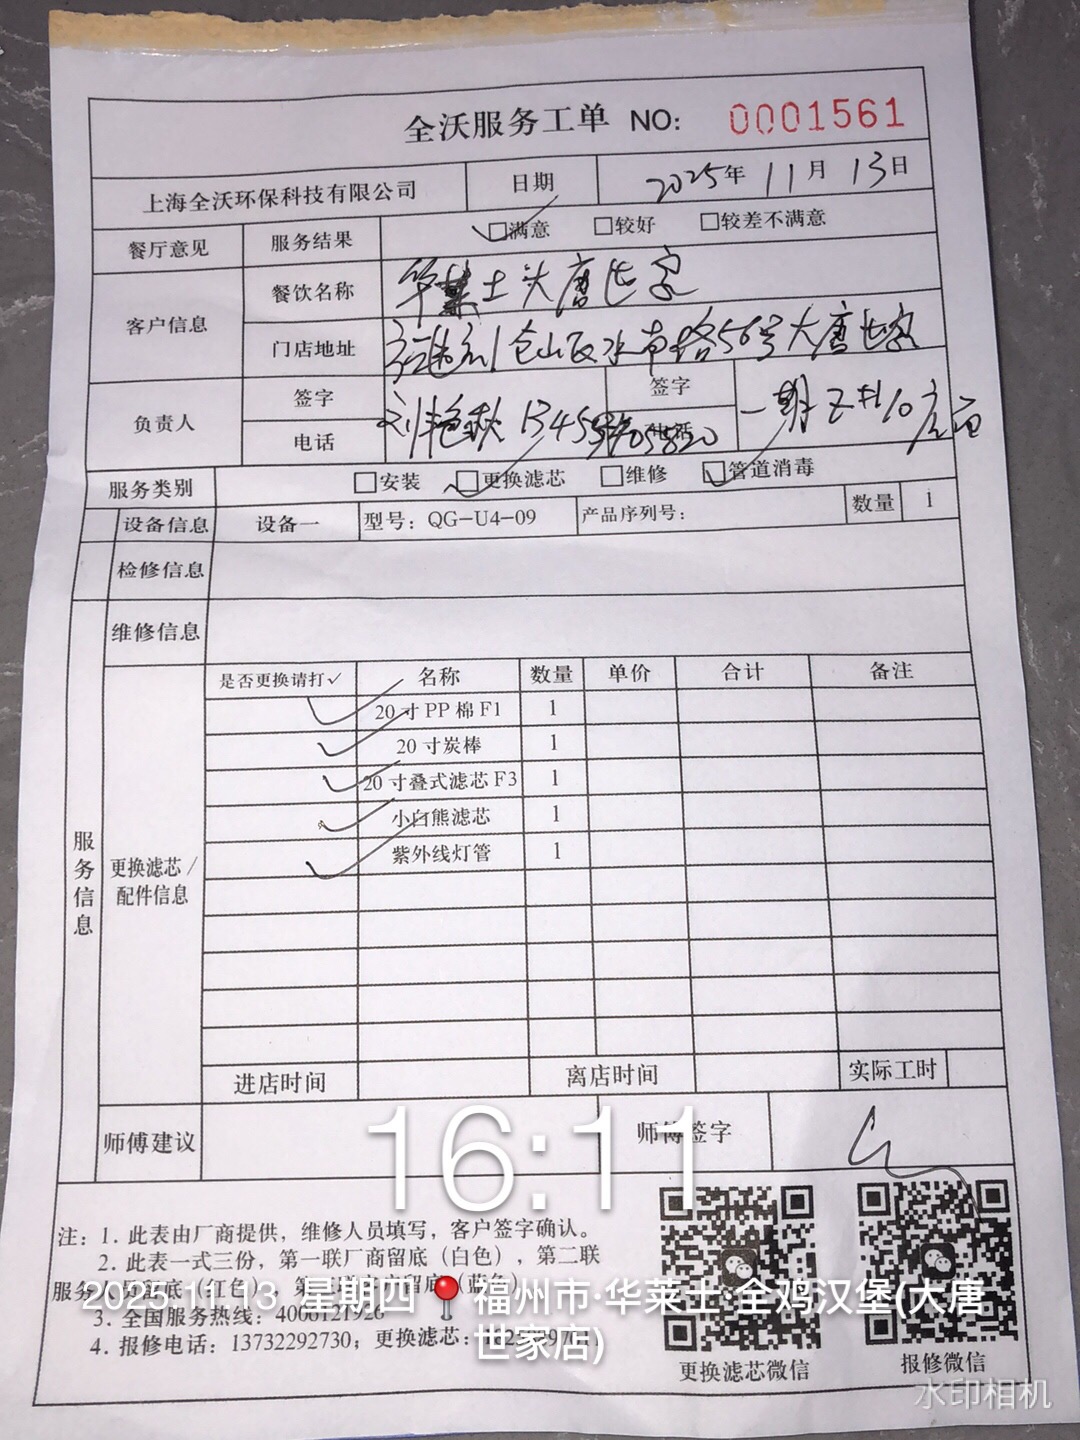 全沃服务工单 NO: 0001561
上海全沃环保科技有限公司 日期 2025年 11月 13日
餐厅意见 服务结果 ☑满意 □较好 □较差不满意
客户信息 餐饮名称 华莱士大唐世家
门店地址 福州仓山区水市路56号大唐世家
负责人 签字 签字 一期Z#10店面
电话 电话
服务类别 □安装 ☑更换滤芯 □维修 ☑管道消毒
设备信息 设备一 型号：QG-U4-09 产品序列号： 数量 1
检修信息
维修信息
服务信息
更换滤芯/配件信息
是否更换请打✓ 名称 数量 单价 合计 备注
✓ 20寸PP棉F1 1
✓ 20寸炭棒 1
✓ 20寸叠式滤芯F3 1
✓ 小白熊滤芯 1
✓ 紫外线灯管 1
进店时间 离店时间 实际工时
师傅建议 师傅签字
16:11
注：1. 此表由厂商提供，维修人员填写，客户签字确认。
2. 此表一式三份，第一联厂商留底（白色），第二联
服务人员留底（红色），第三联客户留底（蓝色）
3. 全国服务热线：4006121926
4. 报修电话：13732292730；更换滤芯：
更换滤芯微信 报修微信
2025.11.13 星期四 福州市·华莱士·全鸡汉堡(大唐
世家店)
水印相机